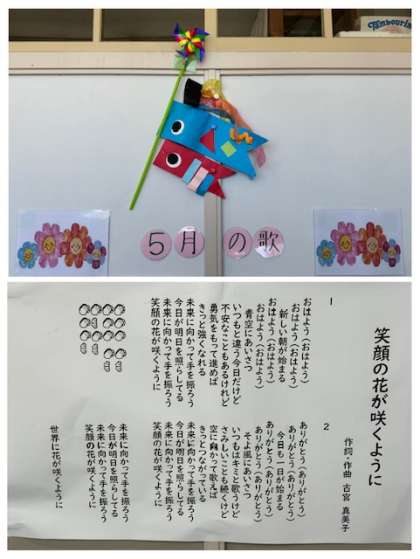 Tambourin
5月の歌
笑顔の花が咲くように
作詞・作曲 古宮 真美子
1
おはよう(おはよう)
おはよう(おはよう)
新しい朝が始まる
おはよう(おはよう)
おはよう(おはよう)
青空にあいさつ
いつもと違う今日だけど
不安なこともあるけれど
勇気をもって進めば
きっと強くなれる
未来に向かって手を振ろう
今日が明日を照らしてる
未来に向かって手を振ろう
笑顔の花が咲くように
2
ありがとう(ありがとう)
ありがとう(ありがとう)
今日も一日が始まる
ありがとう(ありがとう)
ありがとう(ありがとう)
そよ風にあいさつ
いつもはキミと歌うけど
さみしいことも続くけど
空に向かって歌えば
きっとつながっている
未来に向かって手を振ろう
今日が明日を照らしてる
未来に向かって手を振ろう
笑顔の花が咲くように
未来に向かって手を振ろう
今日が明日を照らしてる
未来に向かって手を振ろう
笑顔の花が咲くように
世界に花が咲くように